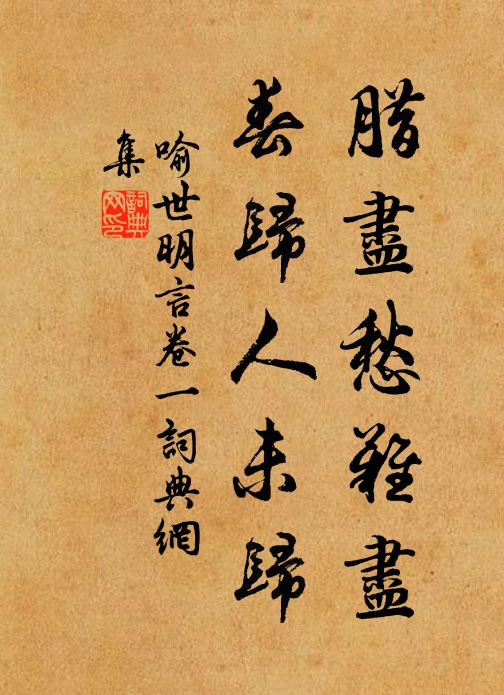 腊盡愁難盡
春歸人未歸
喻世明言卷一詞典網
集
詞典
网印